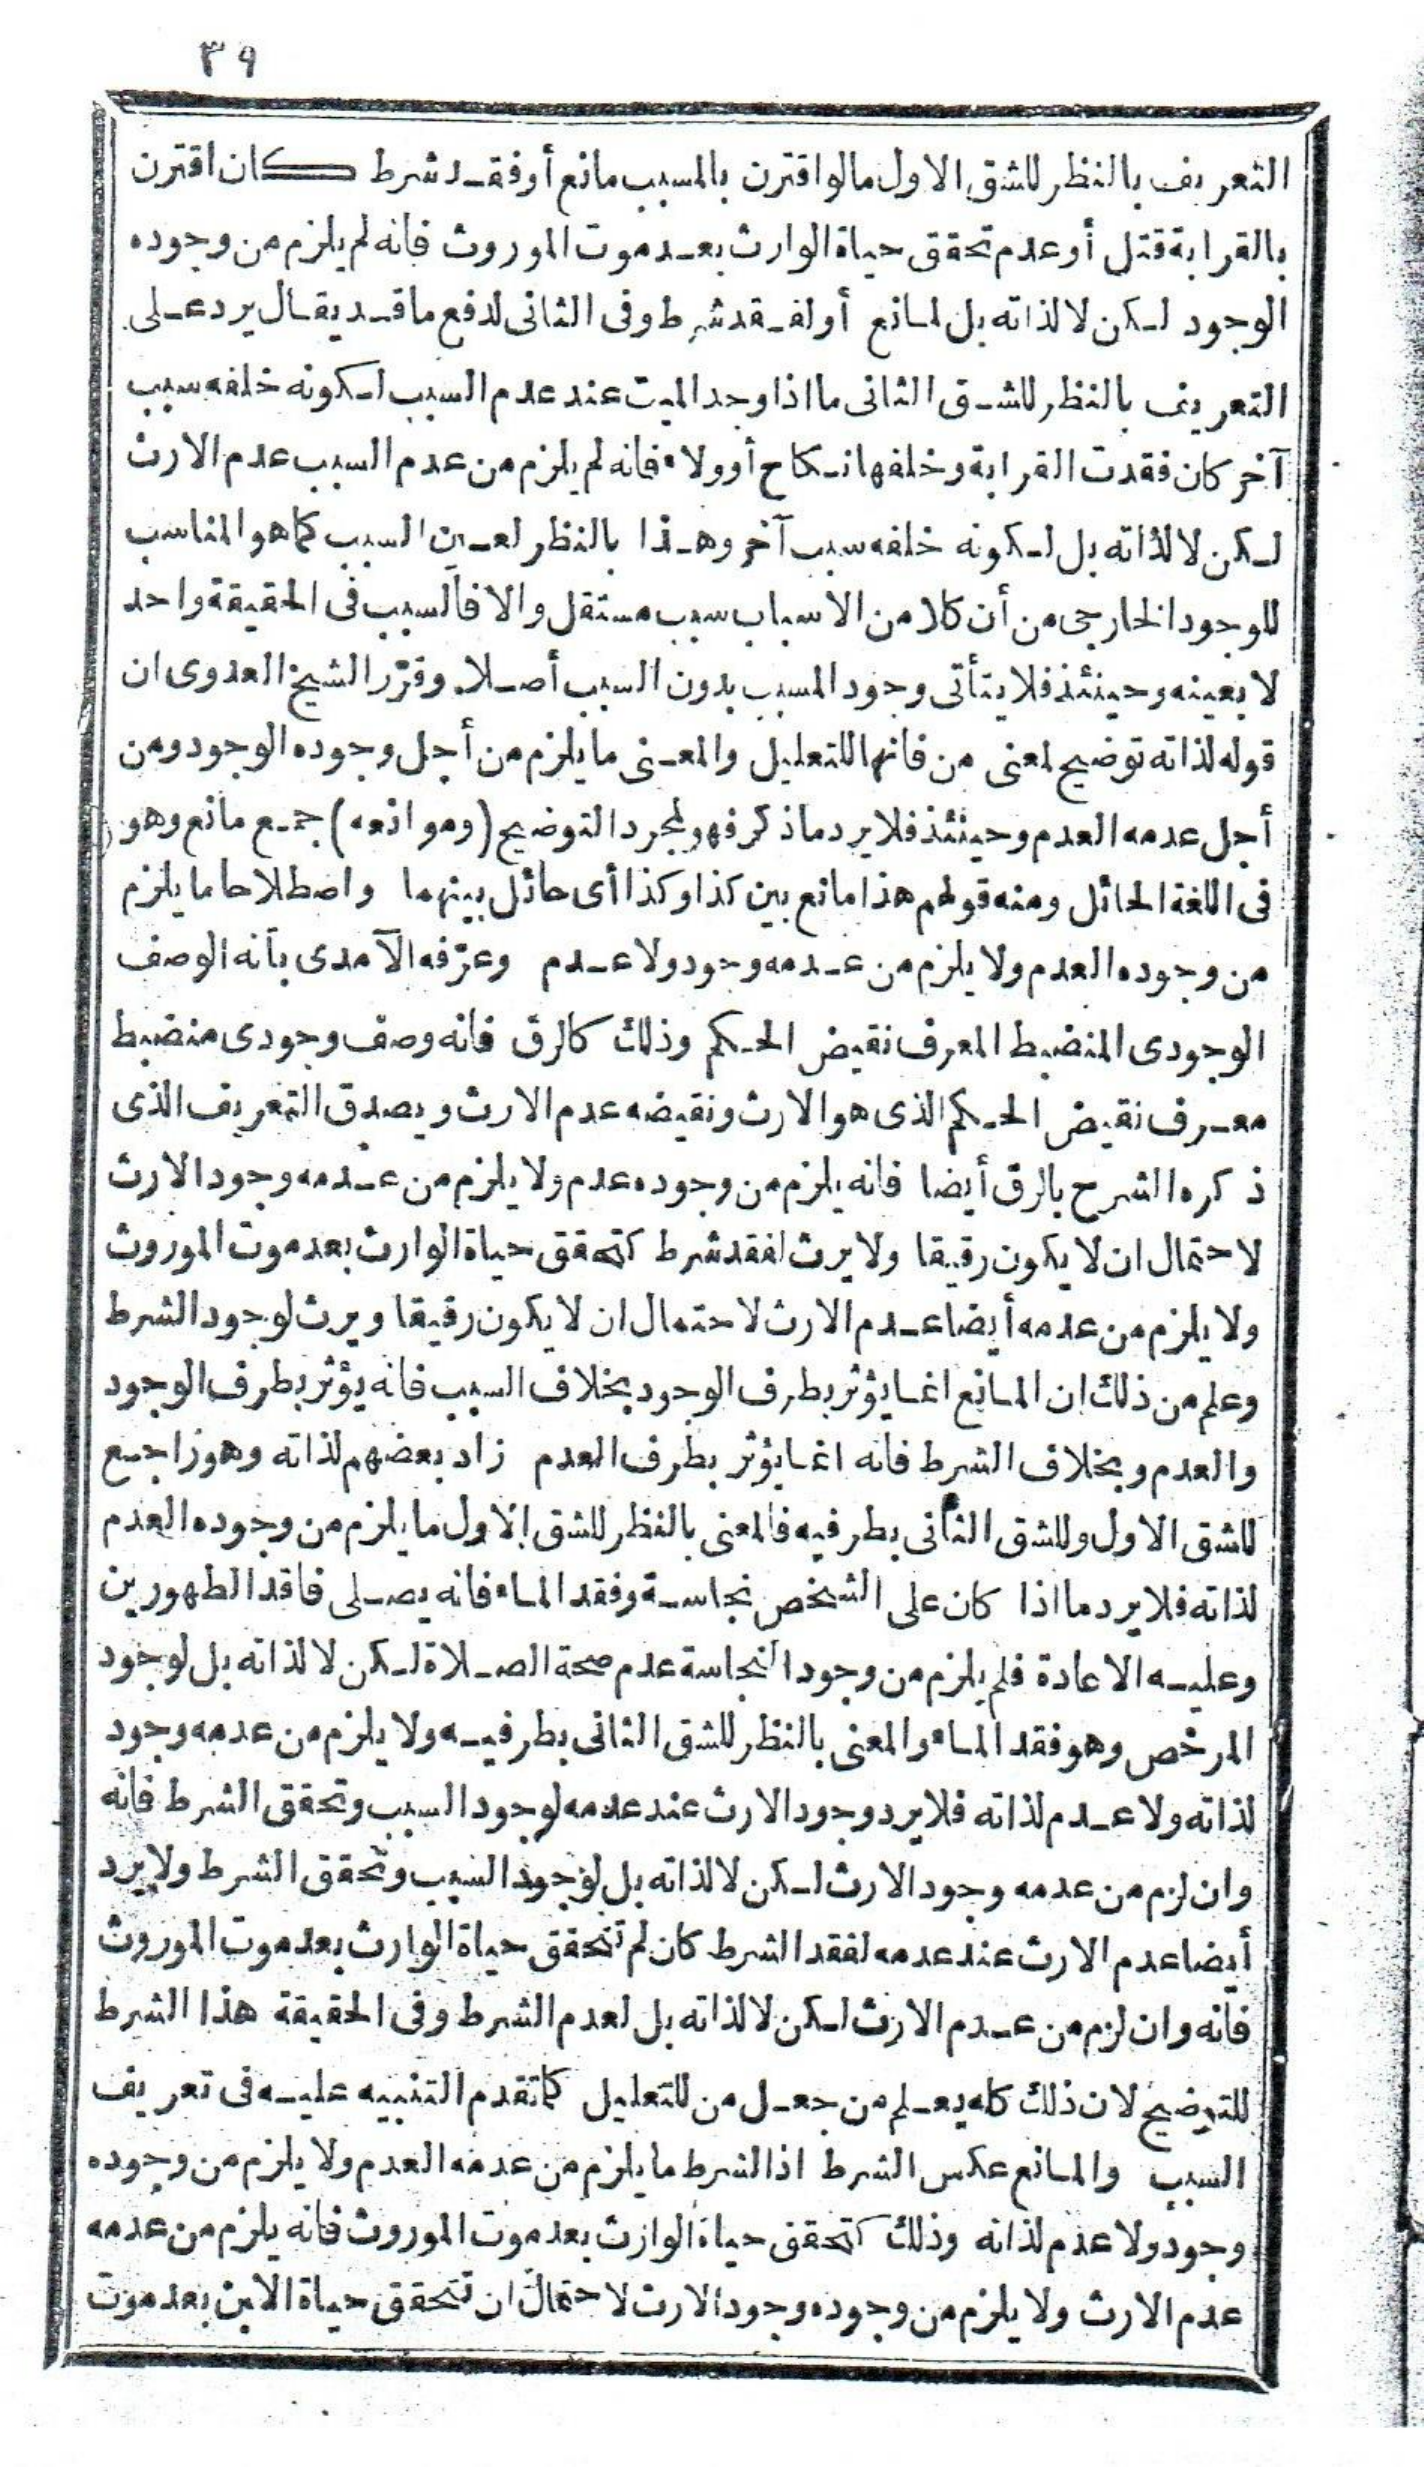 ٣٩
التعريف بالنظر للشق الاول مالو اقترن بالمسبب مانع أو فقد شرط كان اقترن
بالقرابة قتل أو عدم تحقق حياة الوارث بعد موت الموروث فانه لم يلزم من وجوده
الوجود لكن لا لذاته بل لمانع أو لفقد شرط وفى الثانى لدفع ما قد يقال يرد على
التعريف بالنظر للشق الثانى ما اذا وجد الميت عند عدم السبب لكونه خلفه سبب
آخر كان فقدت القرابة وخلفها نكاح أو ولاء فانه لم يلزم من عدم السبب عدم الارث
لكن لا لذاته بل لكونه خلفه سبب آخر وهذا بالنظر لعين السبب كما هو المناسب
للوجود الخارجى من أن كلا من الاسباب سبب مستقل والا فالسبب فى الحقيقة واحد
لا بعينه وحينئذ فلا يتأتى وجود المسبب بدون السبب أصلا وقرّر الشيخ العدوى ان
قوله لذاته توضيح لمعنى من فانها للتعليل والمعنى ما يلزم من أجل وجوده الوجود ومن
أجل عدمه العدم وحينئذ فلا يرد ما ذكر فهو لمجرد التوضيح (وموانعه) جمع مانع وهو
فى اللغة الحائل ومنه قولهم هذا مانع بين كذا وكذا أى حائل بينهما واصطلاحا ما يلزم
من وجوده العدم ولا يلزم من عدمه وجود ولا عدم وعرّفه الآمدى بأنه الوصف
الوجودى المنضبط المعرف نقيض الحكم وذلك كالرق فانه وصف وجودى منضبط
معرف نقيض الحكم الذى هو الارث ونقيضه عدم الارث ويصدق التعريف الذى
ذكره الشرح بالرق أيضا فانه يلزم من وجوده عدم ولا يلزم من عدمه وجود الارث
لاحتمال ان لا يكون رقيقا ولا يرث لفقد شرط كتحقق حياة الوارث بعد موت الموروث
ولا يلزم من عدمه أيضا عدم الارث لاحتمال ان لا يكون رقيقا ويرث لوجود الشرط
وعلم من ذلك ان المانع انما يؤثر بطرف الوجود بخلاف السبب فانه يؤثر بطرف الوجود
والعدم وبخلاف الشرط فانه انما يؤثر بطرف العدم زاد بعضهم لذاته وهو راجع
للشق الاول وللشق الثانى بطرفيه فالمعنى بالنظر للشق الاول ما يلزم من وجوده العدم
لذاته فلا يرد ما اذا كان على الشخص نجاسة وفقد الماء فانه يصلى فاقد الطهورين
وعليه الاعادة فلم يلزم من وجود النجاسة عدم صحة الصلاة لكن لا لذاته بل لوجود
المرخص وهو فقد الماء والمعنى بالنظر للشق الثانى بطرفيه ولا يلزم من عدمه وجود
لذاته ولا عدم لذاته فلا يرد وجود الارث عند عدمه لوجود السبب وتحقق الشرط فانه
وان لزم من عدمه وجود الارث لكن لا لذاته بل لوجود السبب وتحقق الشرط ولا يرد
أيضا عدم الارث عند عدمه لفقد الشرط كان لم تتحقق حياة الوارث بعد موت الموروث
فانه وان لزم من عدم الارث لكن لا لذاته بل لعدم الشرط وفى الحقيقة هذا الشرط
للتوضيح لان ذلك كله يعلم من جعل من للتعليل كما تقدم التنبيه عليه فى تعريف
السبب والمانع عكس الشرط اذ الشرط ما يلزم من عدمه العدم ولا يلزم من وجوده
وجود ولا عدم لذاته وذلك كتحقق حياة الوارث بعد موت الموروث فانه يلزم من عدمه
عدم الارث ولا يلزم من وجوده وجود الارث لاحتمال ان تتحقق حياة الابن بعد موت